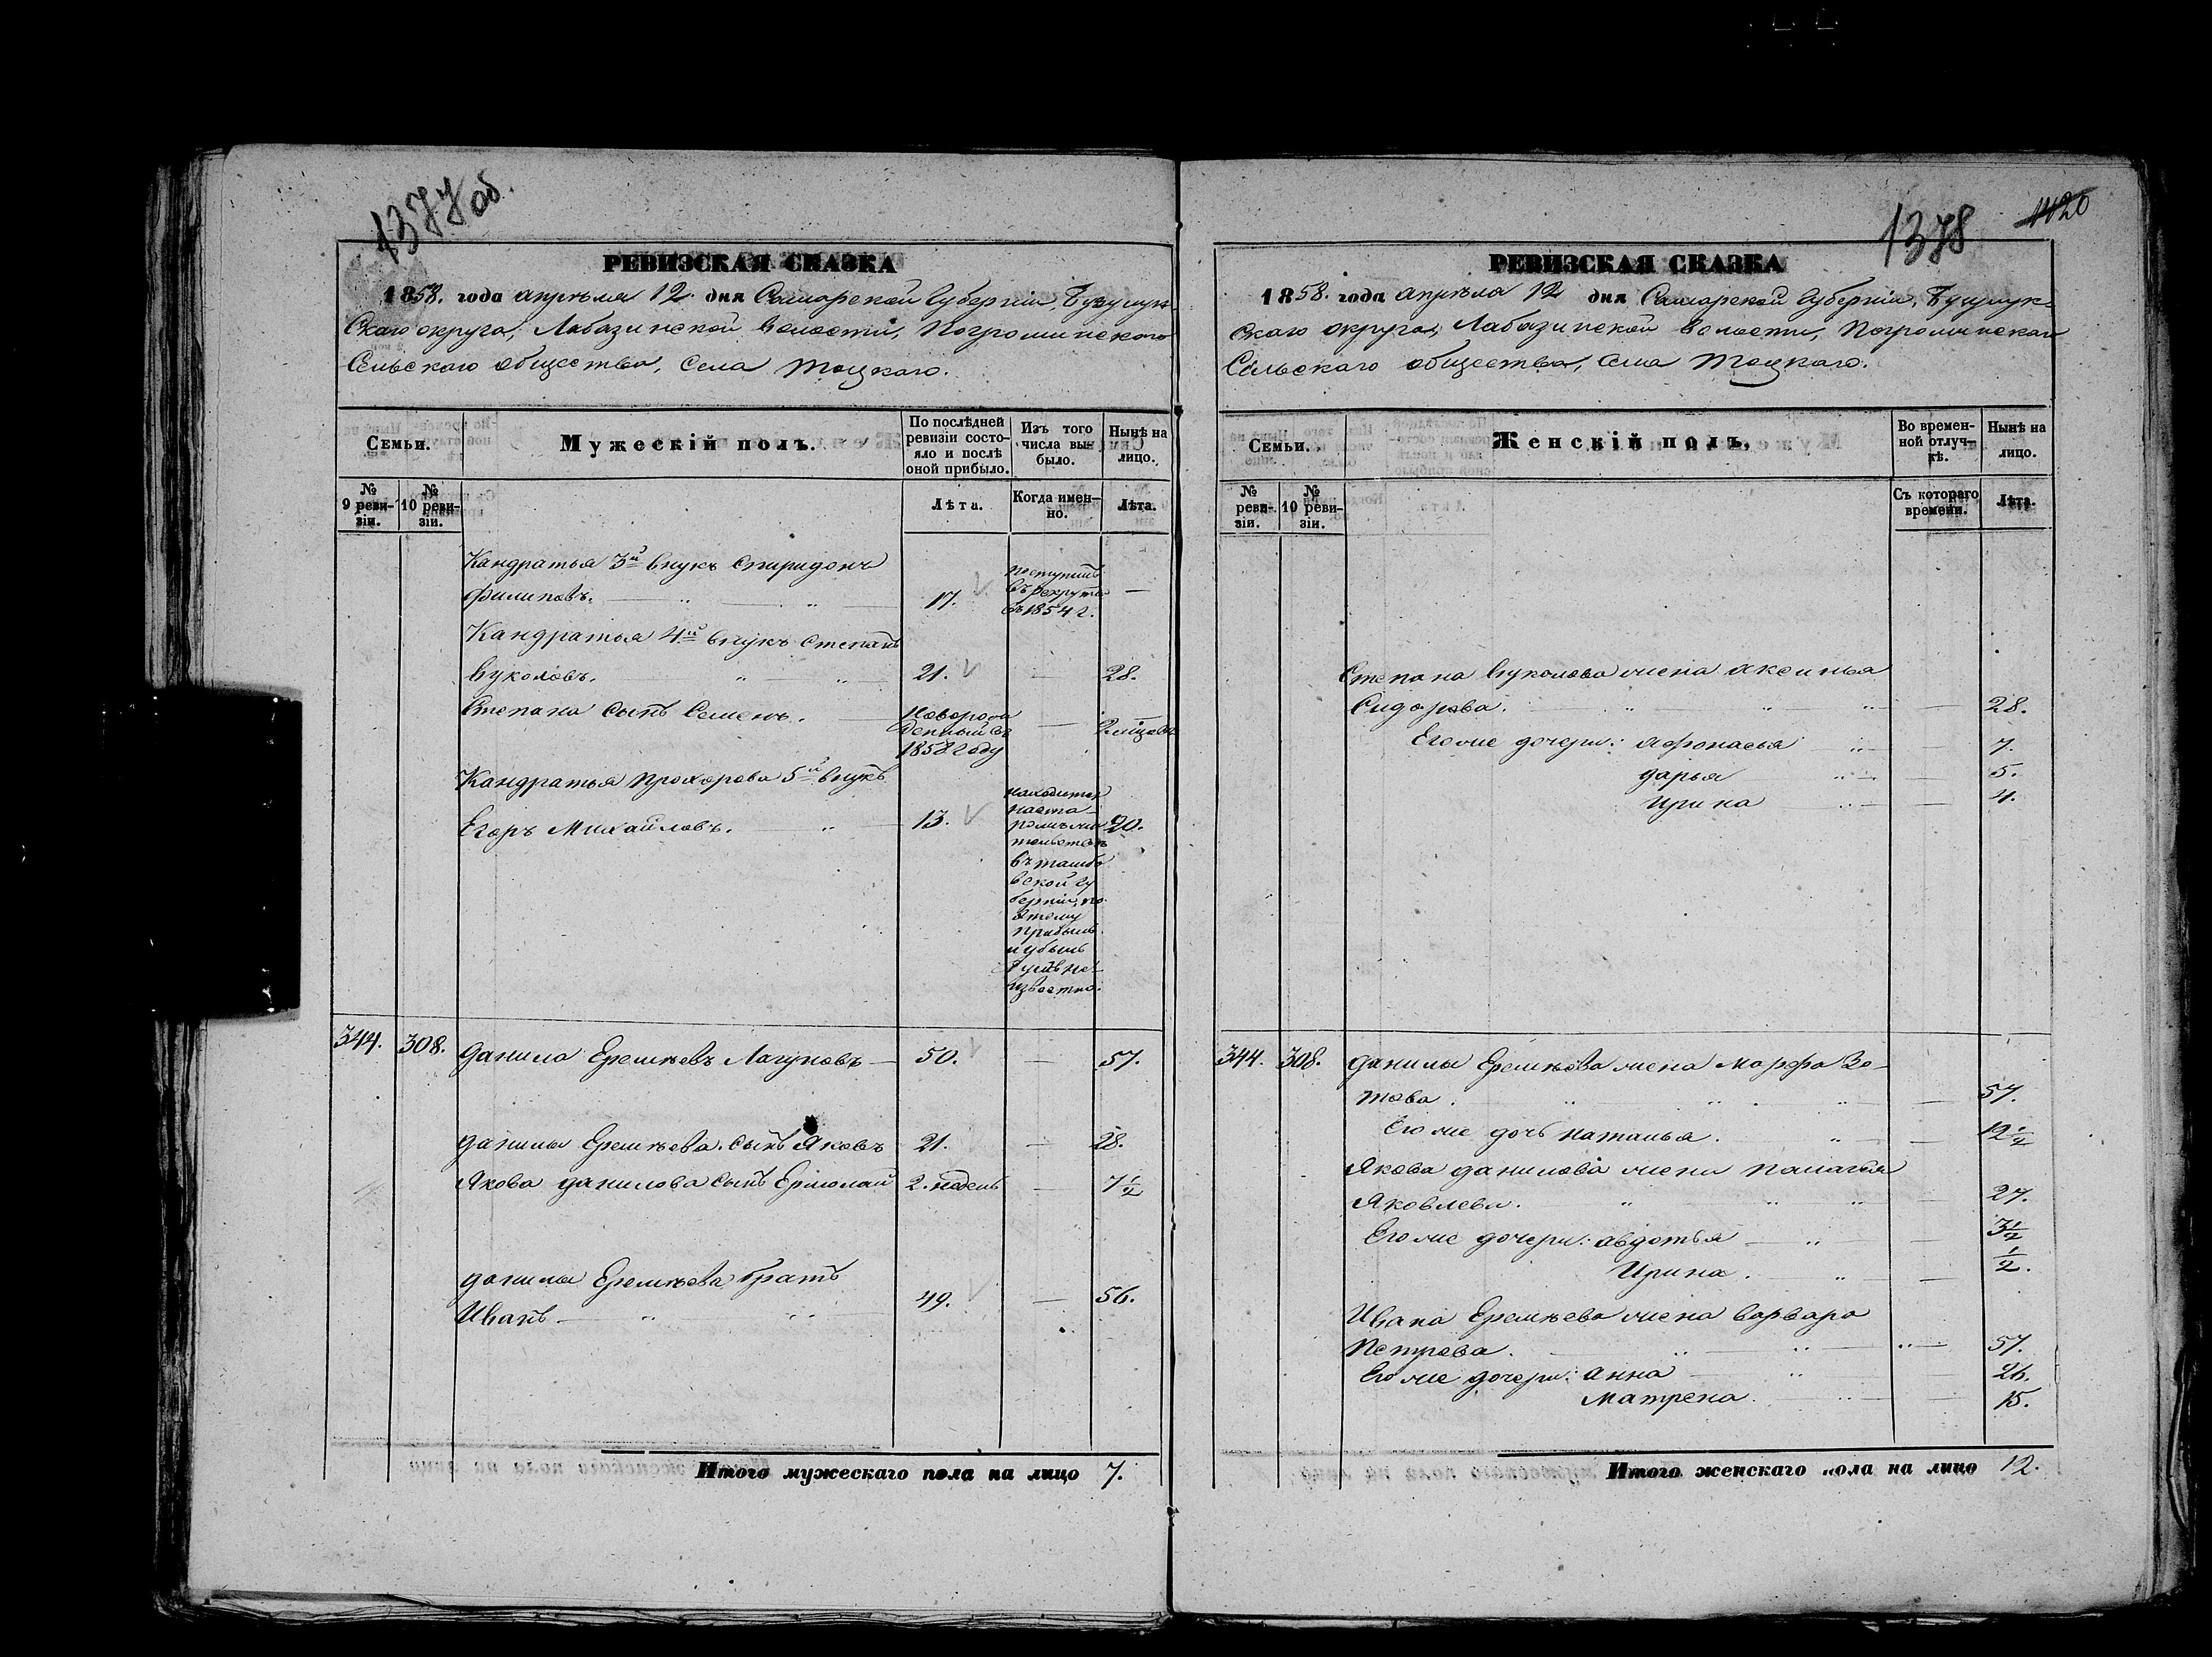 1377 об.
РЕВИЗСКАЯ СКАЗКА
1858. года апрѣля 12. дня Самарской Губерніи, Бузулук-
Скаго округа, Лабазинской волости, Погроминскаго
Сельскаго общества, Села Тоцкаго.
Семьи.
Мужескій полъ.
По послѣдней ревизіи состо-яло и послѣ оной прибыло.
Изъ того числа вы-было.
Нынѣ на лицо.
№ 9 реви-зіи.
№ 10 реви-зіи.
Лѣта.
Когда имен-но.
Лѣта.
Кандратья 3й внукъ Спиридонъ
Филиповъ. 17. поступилъ въ рекруты въ 1854 г. —
Кандратья 4й внукъ Степанъ
Вуколовъ. 21. — 28.
Степана Сынъ Семенъ. Новорож денный въ 1858 году — 2 мѣсяц
Кандратья Прохорова 5й внукъ
Егоръ Михайловъ. 13. находится на ста- ромъ жи тельстве въ тамбо вской гу берніи, по этому прибылъ и убылъ неизвестно. 20.
344. 308. Данила Еремѣевъ Лагуновъ — 50. — 57.
Данилы Еремѣева Сынъ Яковъ 21. — 28.
Якова Данилова Сынъ Ермолай 2. недель — 7 1/2
Данилы Еремѣева братъ
Иванъ — 49. — 56.
Итого мужескаго пола на лицо 7.
1378
1420
РЕВИЗСКАЯ СКАЗКА
1858. года апрѣля 12 дня Самарской Губерніи, Бузулук-
Скаго округа, Лабазинской волости, Погроминскаго
Сельскаго общества, Села Тоцкаго.
Семьи.
Женскій полъ.
Во времен-ной отлуч-кѣ.
Нынѣ на лицо.
№ реви-зіи.
№ 10 реви-зіи.
Съ котораго времени.
Лѣта.
Степана Вуколова жена Аксинья
Сидорова. — 28.
Его же дочери: Афонасья — 7.
Дарья — 5.
Ирина — 4.
344. 308. Данилы Еремѣева жена Марфа Зо-
това. — 57.
Его же дочь Наталья. — 12 1/2
Якова Данилова жена Палагея
Яковлева. — 27.
Его же дочери: Авдотья — 3 1/2
Ирина. — 1/2.
Ивана Еремѣева жена Варвара
Петрова. — 57.
Его же дочери: Анна 26.
Матрена. — 15.
Итого женскаго пола на лицо 12.